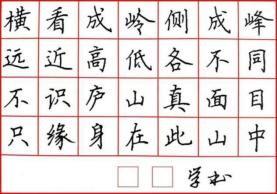 横看成岭侧成峰
远近高低各不同
不识庐山真面目
只缘身在此山中
□□学书